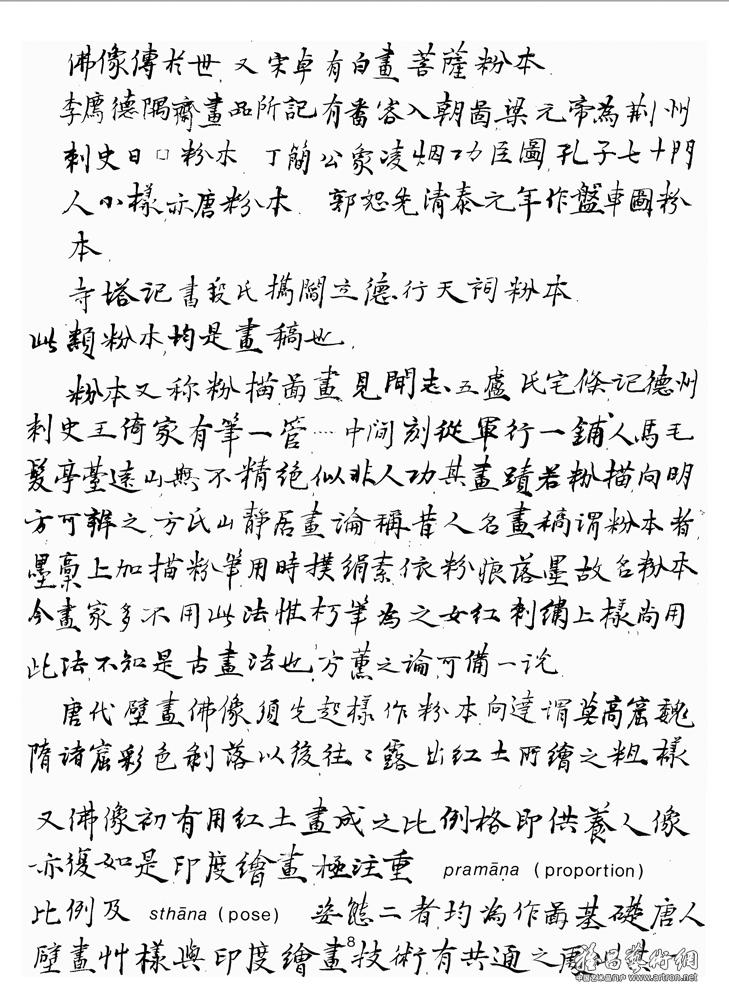 佛像傳於世又宋卓有白畫菩薩粉本
李廌德隅齋畫品所記有番客入朝啚梁元帝為荆州
刺史日□粉本 丁簡公家凌烟功臣圖孔子七十門
人小樣亦唐粉本 郭恕先清泰元年作盤車圖粉
本
寺塔記書段氏携閻立德行天祠粉本
此類粉本均是畫稿也
粉本又称粉描啚畫見聞志五盧氏宅條記德州
刺史王倚家有筆一管…中间刻從軍行一鋪人馬毛
髮亭臺遠山無不精絕似非人功其畫蹟若粉描向明
方可辨之方氏山靜居畫論稱昔人名畫稿謂粉本者
墨稾上加描粉筆用時撲絹素依粉痕落墨故名粉本
今畫家多不用此法惟朽筆為之女红刺繡上樣尚用
此法不知是古畫法也方薰之論可備一说
唐代壁畫佛像須先起樣作粉本向達謂莫高窟魏
隋诸窟彩色剥落以後往〻露出红土所繪之粗樣
又佛像初有用红土畫成之比例格即供養人像
亦復如是印度繪畫極注重 pramāna (proportion)
比例及 sthāna (pose) 姿態二者均為作啚基礎唐人
壁畫艸樣與印度繪畫技術有共通之
8
雅昌藝術網
中国艺术品门户网 www.artron.net